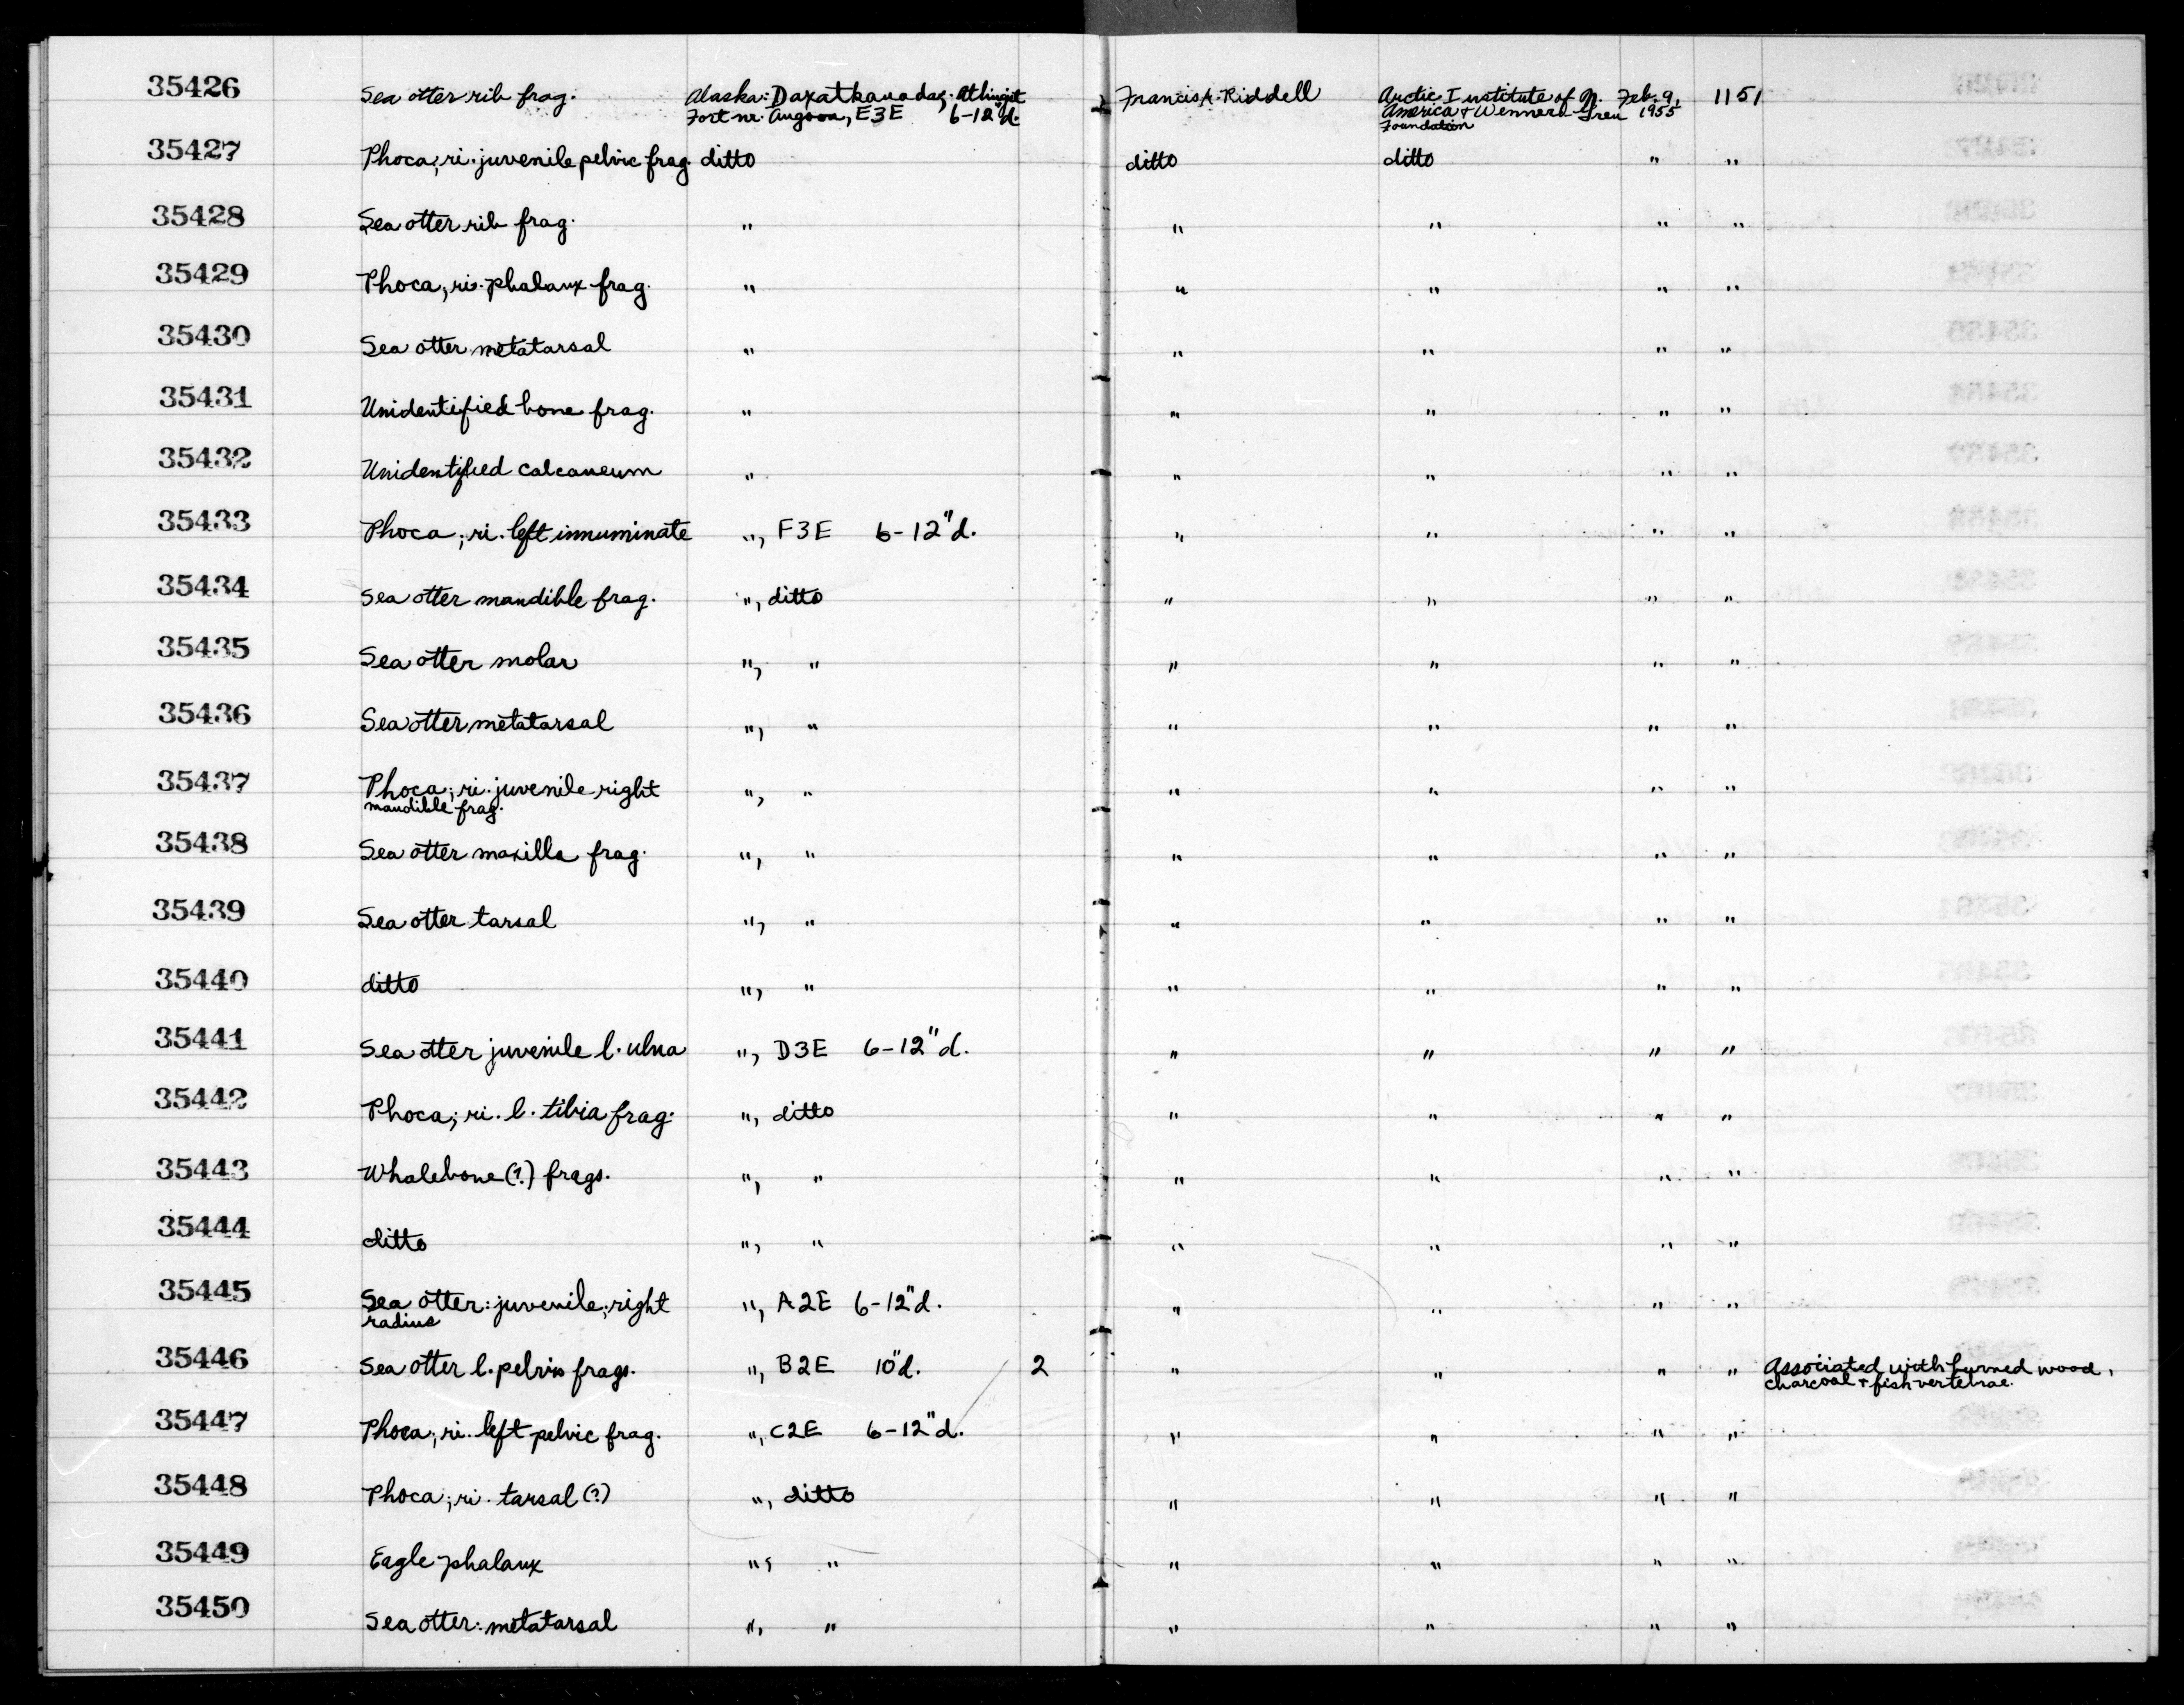 35426 Sea otter rib frag. Alaska: Daxatkanada; Athingit Francis A. Riddell Arctic Institute of N. Feb. 9, 1151
Fort nr. Angoon, E3E 6-12"d. America & Wenner-Gren 1955
Foundation
35427 Phoca; ri. juvenile pelvic frag. ditto ditto ditto " "
35428 Sea otter rib frag. " " " " "
35429 Phoca; ri. phalanx frag. " " " " "
35430 Sea otter metatarsal " " " " "
35431 Unidentified bone frag. " " " " "
35432 Unidentified calcaneum " " " " "
35433 Phoca; ri. left innuminate ", F3E 6-12"d. " " " "
35434 Sea otter mandible frag. ", ditto " " " "
35435 Sea otter molar ", " " " " "
35436 Sea otter metatarsal ", " " " " "
35437 Phoca; ri. juvenile right ", " " " " "
mandible frag.
35438 Sea otter maxilla frag. ", " " " " "
35439 Sea otter tarsal ", " " " " "
35440 ditto ", " " " " "
35441 Sea otter juvenile l. ulna ", D3E 6-12"d. " " " "
35442 Phoca; ri. l. tibia frag. ", ditto " " " "
35443 Whalebone(?) frags. ", " " " " "
35444 ditto ", " " " " "
35445 Sea otter: juvenile; right ", A2E 6-12"d. " " " "
radius
35446 Sea otter l. pelvis frags. ", B2E 10"d. 2 " " " " Associated with burned wood,
charcoal & fish vertebrae.
35447 Phoca; ri. left pelvic frag. ", C2E 6-12"d. " " " "
35448 Phoca; ri. tarsal(?) ", ditto " " " "
35449 Eagle phalanx ", " " " " "
35450 Sea otter: metatarsal ", " " " " "